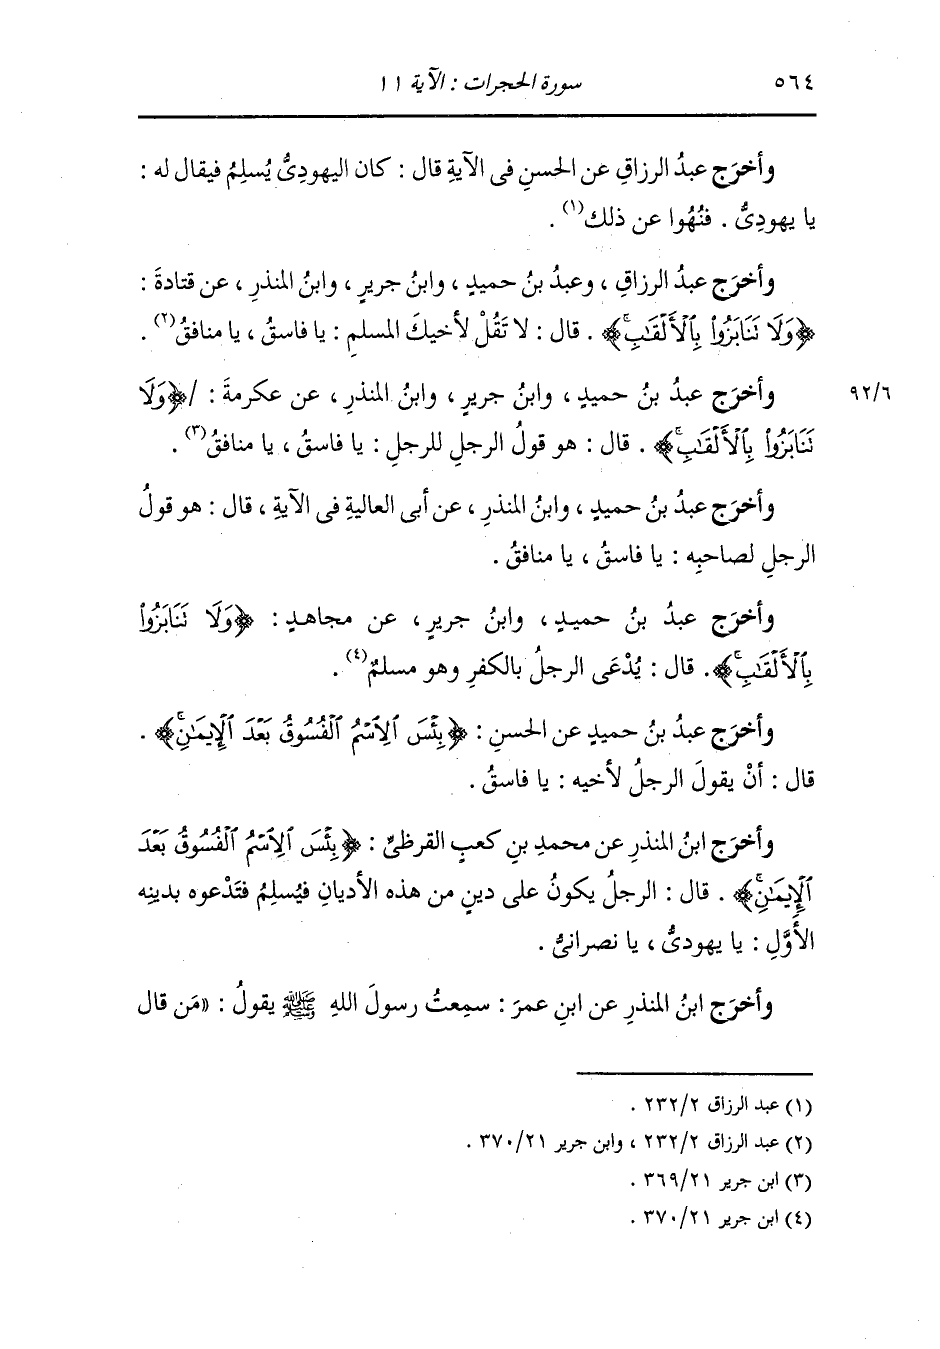 ٥٦٤ سورة الحجرات : الآية ١١
وأخرَج عبدُ الرزاقِ عن الحسنِ فى الآيةِ قال : كان اليهودِىُّ يُسلِمُ فيقال له :
يا يهودِىُّ . فنُهُوا عن ذلك(١) .
وأخرَج عبدُ الرزاقِ ، وعبدُ بنُ حميدٍ ، وابنُ جريرٍ ، وابنُ المنذرِ ، عن قتادةَ :
﴿وَلَا نَنَابَزُوا۟ بِٱلْأَلْقَـٰبِۚ﴾ . قال : لا تَقُلْ لأخيكَ المسلمِ : يا فاسقُ ، يا منافقُ(٢) .
وأخرَج عبدُ بنُ حميدٍ ، وابنُ جريرٍ ، وابنُ المنذرِ ، عن عكرمةَ : /﴿وَلَا ٩٢/٦
نَنَابَزُوا۟ بِٱلْأَلْقَـٰبِۚ﴾ . قال : هو قولُ الرجلِ للرجلِ : يا فاسقُ ، يا منافقُ(٣) .
وأخرَج عبدُ بنُ حميدٍ ، وابنُ المنذرِ ، عن أبى العاليةِ فى الآيةِ ، قال : هو قولُ
الرجلِ لصاحبِه : يا فاسقُ ، يا منافقُ .
وأخرَج عبدُ بنُ حميدٍ ، وابنُ جريرٍ ، عن مجاهدٍ : ﴿وَلَا نَنَابَزُوا۟
بِٱلْأَلْقَـٰبِۚ﴾ . قال : يُدْعَى الرجلُ بالكفرِ وهو مسلمٌ(٤) .
وأخرَج عبدُ بنُ حميدٍ عن الحسنِ : ﴿بِئْسَ ٱلِٱسْمُ ٱلْفُسُوقُ بَعْدَ ٱلْإِيمَـٰنِۚ﴾ .
قال : أنْ يقولَ الرجلُ لأخيه : يا فاسقُ .
وأخرَج ابنُ المنذرِ عن محمدِ بنِ كعبٍ القرظىِّ : ﴿بِئْسَ ٱلِٱسْمُ ٱلْفُسُوقُ بَعْدَ
ٱلْإِيمَـٰنِۚ﴾ . قال : الرجلُ يكونُ على دينٍ من هذه الأديانِ فيُسلِمُ فتَدْعوه بدينِه
الأوَّلِ : يا يهودىُّ ، يا نصرانىُّ .
وأخرَج ابنُ المنذرِ عن ابنِ عمرَ : سمِعتُ رسولَ اللهِ ﷺ يقولُ : «مَن قال
(١) عبد الرزاق ٢٣٢/٢ .
(٢) عبد الرزاق ٢٣٢/٢ ، وابن جرير ٣٧٠/٢١ .
(٣) ابن جرير ٣٦٩/٢١ .
(٤) ابن جرير ٣٧٠/٢١ .